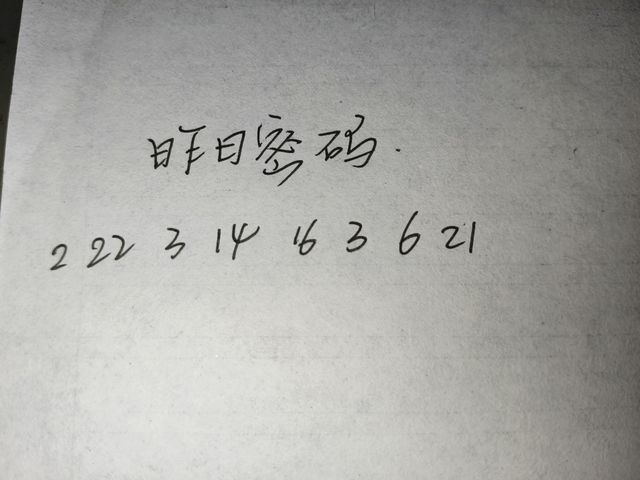 昨日密码.
2 22 3 14 16 3 6 21